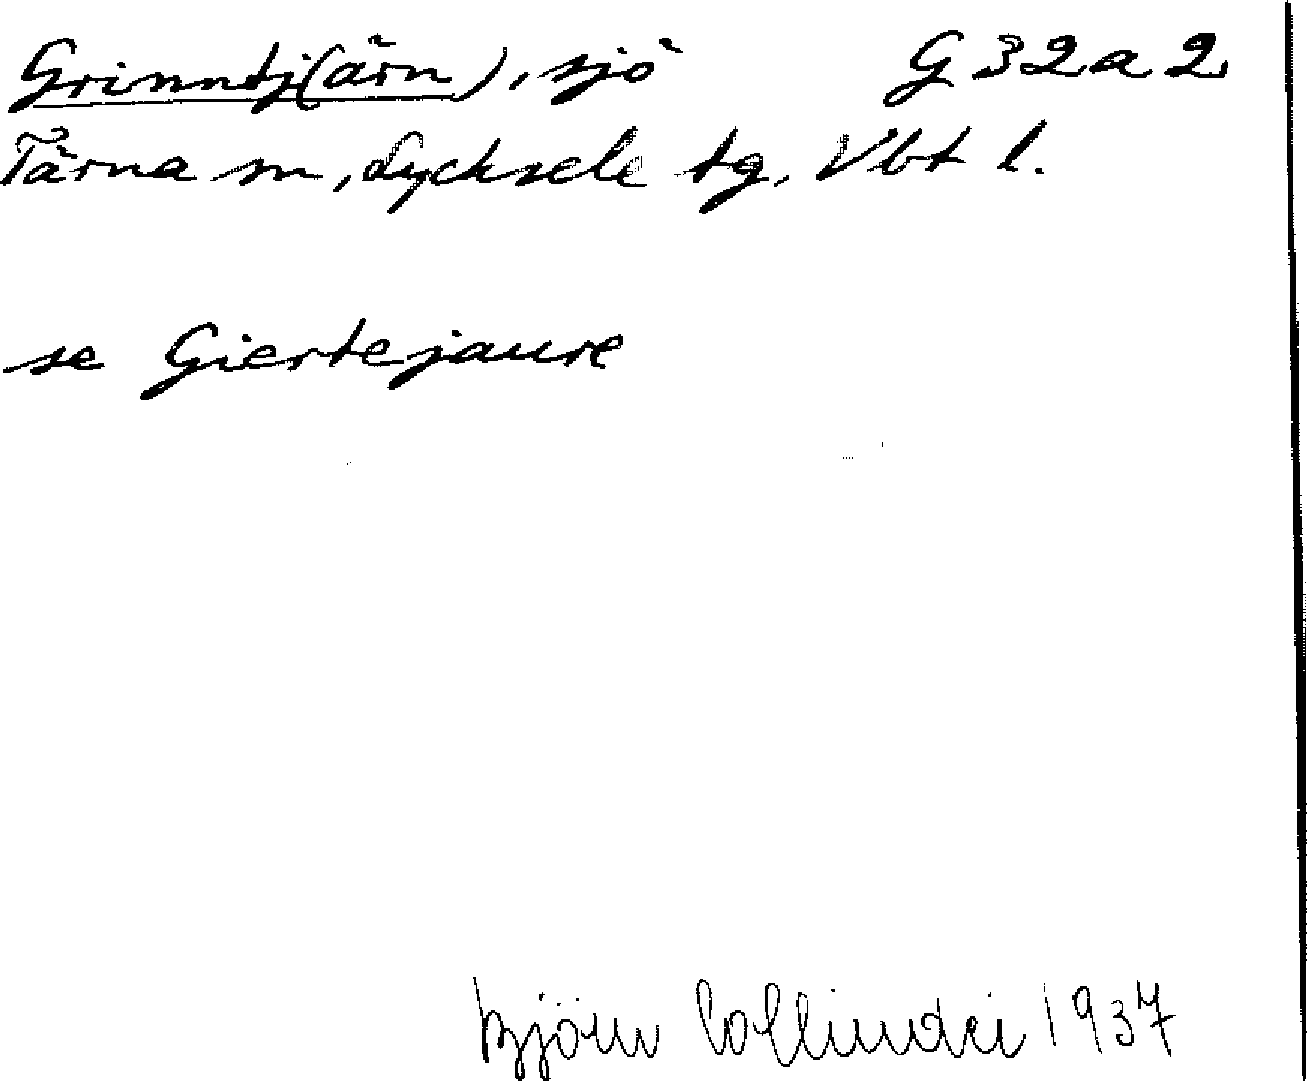 Grinntj(ärn), sjö G32a2
Tärna sn, Lycksele tg, Vbt l.
se Giertejaure
Björn Collinder 1937